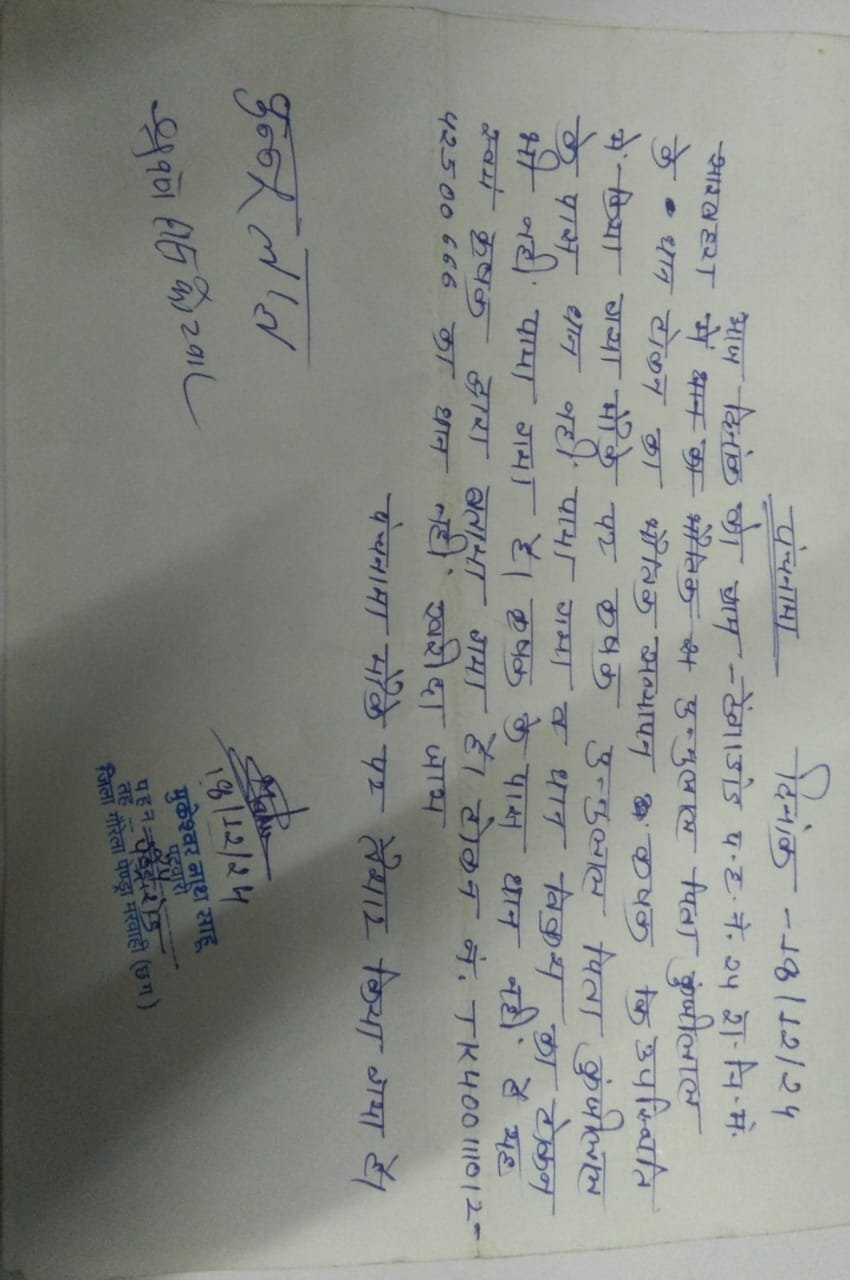 पंचनामा दिनांक - 18/12/24
आज दिनांक को ग्राम - टंगाडांड प.ह.नं. 24 रा.नि.मं.
में धान का भौतिक पिता कुंजीलाल
के धान टोकन का भौतिक सत्यापन कृषक कि उपस्थिति
में किया गया मौके पर कृषक पिता कुंजीलाल
के पास धान नहीं पाया गया व धान विक्रय का टोकन
भी नहीं पाया गया है। कृषक के पास धान नहीं है यह
स्वयं कृषक द्वारा बताया गया है। टोकन नं. TK400111012-
42500666 का धान नहीं खरीदा जाय
पंचनामा मौके पर तैयार किया गया है।
18/12/24
मुकेश्वर नाथ साहू
पटवारी
प.ह.न. 24
तह.
जिला गौरेला पेण्ड्रा मरवाही (छग)